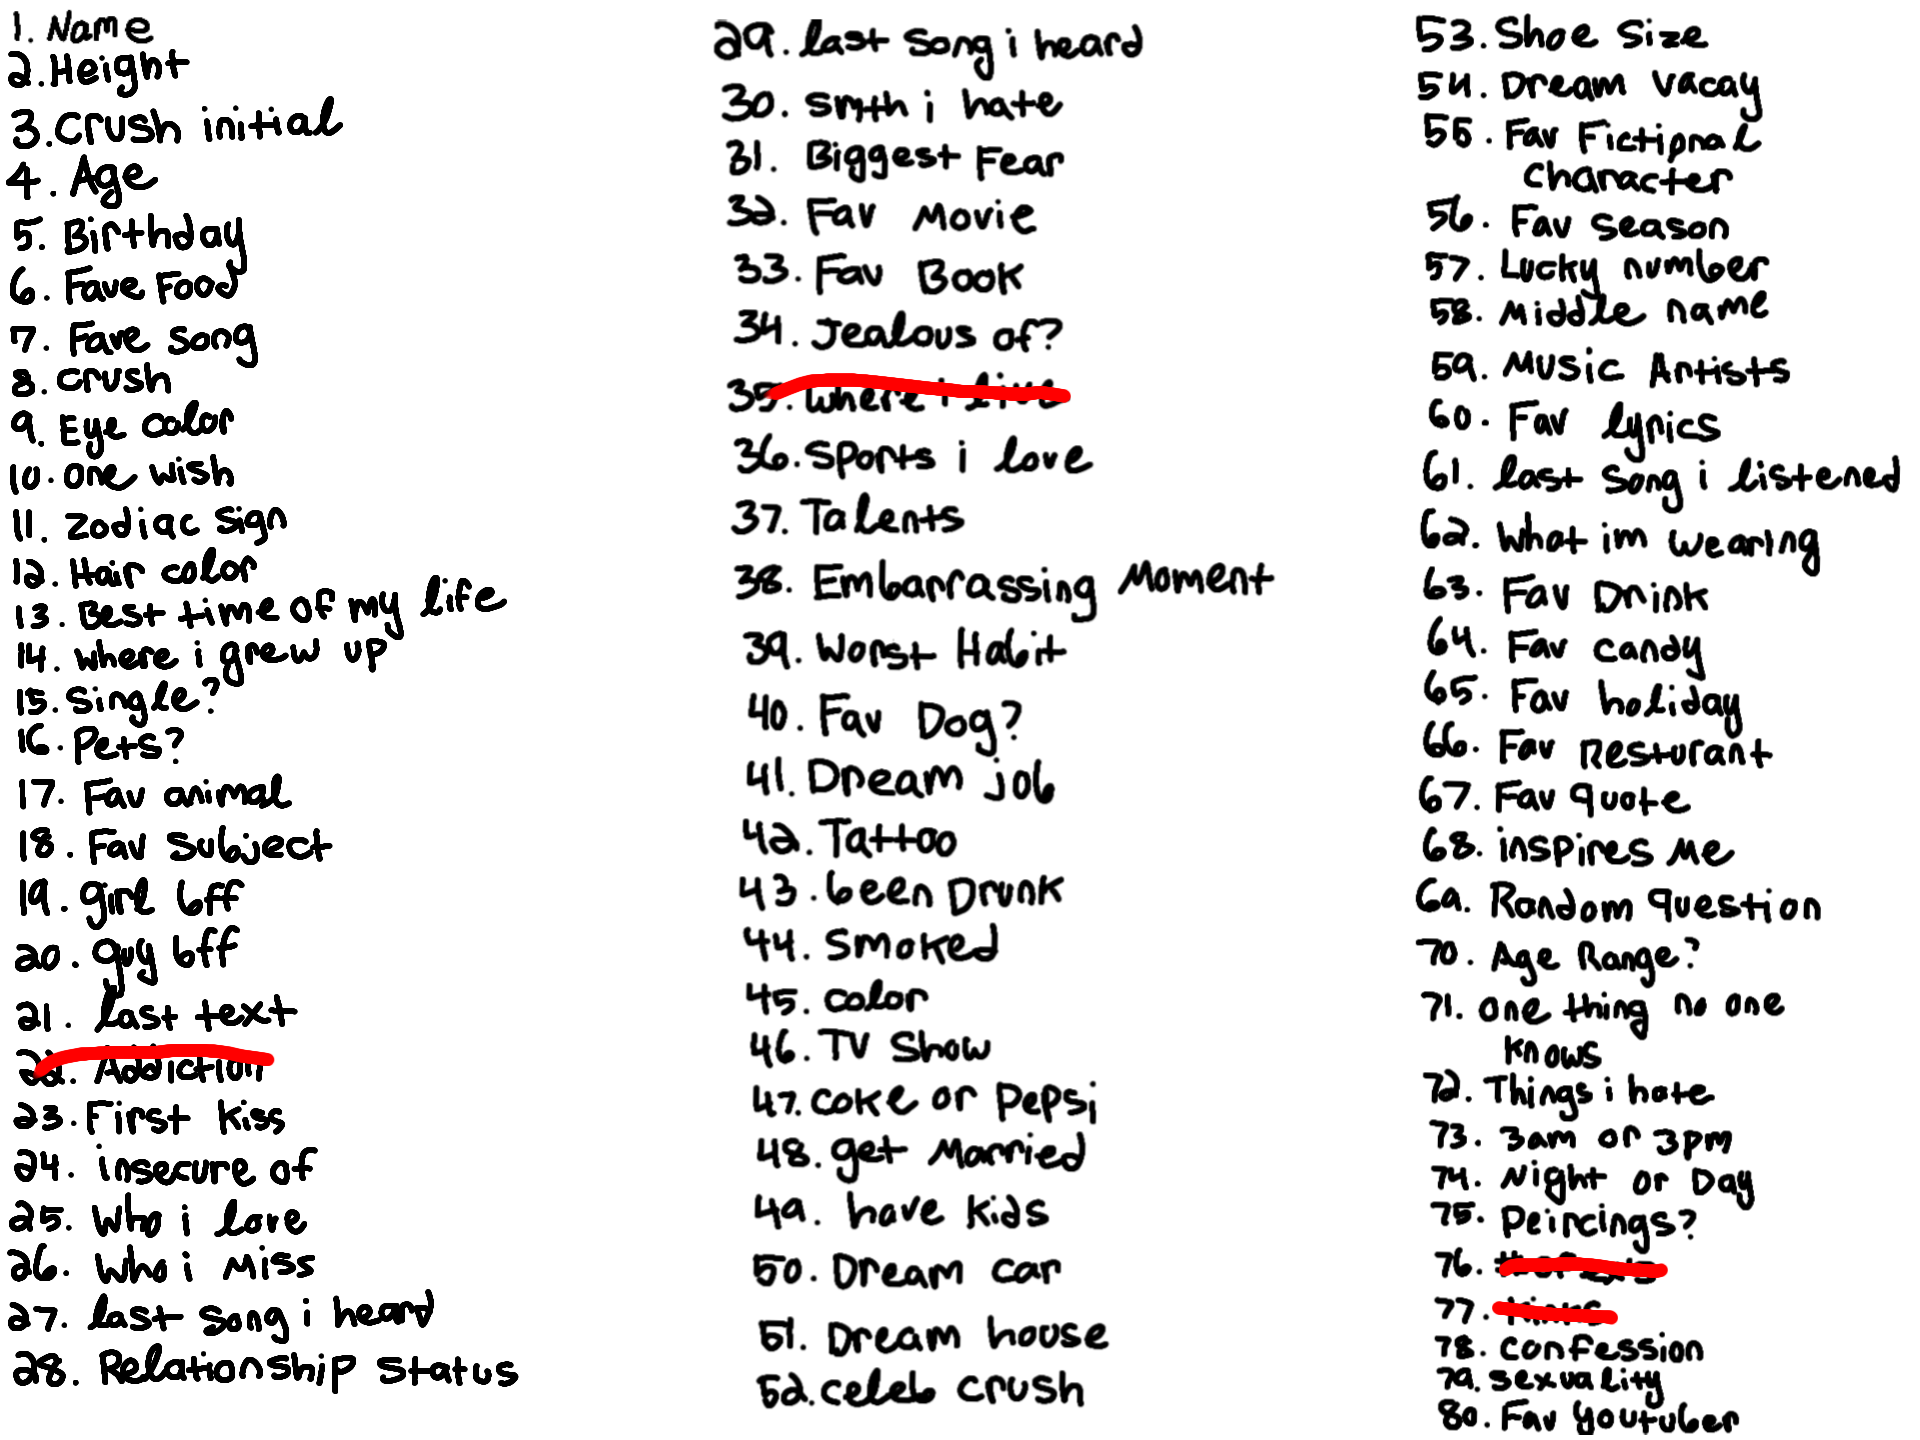 1. Name
2. Height
3. Crush initial
4. Age
5. Birthday
6. Fave Food
7. Fave song
8. crush
9. Eye color
10. one wish
11. Zodiac Sign
12. Hair color
13. Best time of my life
14. where i grew up
15. Single?
16. Pets?
17. Fav animal
18. Fav Subject
19. girl bff
20. guy bff
21. last text
22. Addiction
23. First kiss
24. insecure of
25. Who i love
26. Who i Miss
27. last song i heard
28. Relationship Status
29. last song i heard
30. smth i hate
31. Biggest Fear
32. Fav Movie
33. Fav Book
34. Jealous of?
35. where i live
36. Sports i love
37. Talents
38. Embarrassing Moment
39. Worst Habit
40. Fav Dog?
41. Dream job
42. Tattoo
43. been Drunk
44. Smoked
45. color
46. TV Show
47. Coke or Pepsi
48. get Married
49. have kids
50. Dream car
51. Dream house
52. celeb crush
53. Shoe Size
54. Dream vacay
55. Fav Fictional
character
56. Fav season
57. Lucky number
58. Middle name
59. Music Artists
60. Fav lyrics
61. last song i listened
62. What im wearing
63. Fav Drink
64. Fav candy
65. Fav holiday
66. Fav Resturant
67. Fav quote
68. inspires Me
69. Random question
70. Age Range?
71. one thing no one
knows
72. Things i hate
73. 3am or 3pm
74. Night or Day
75. Peircings?
76.
77.
78. confession
79. sexuality
80. Fav Youtuber